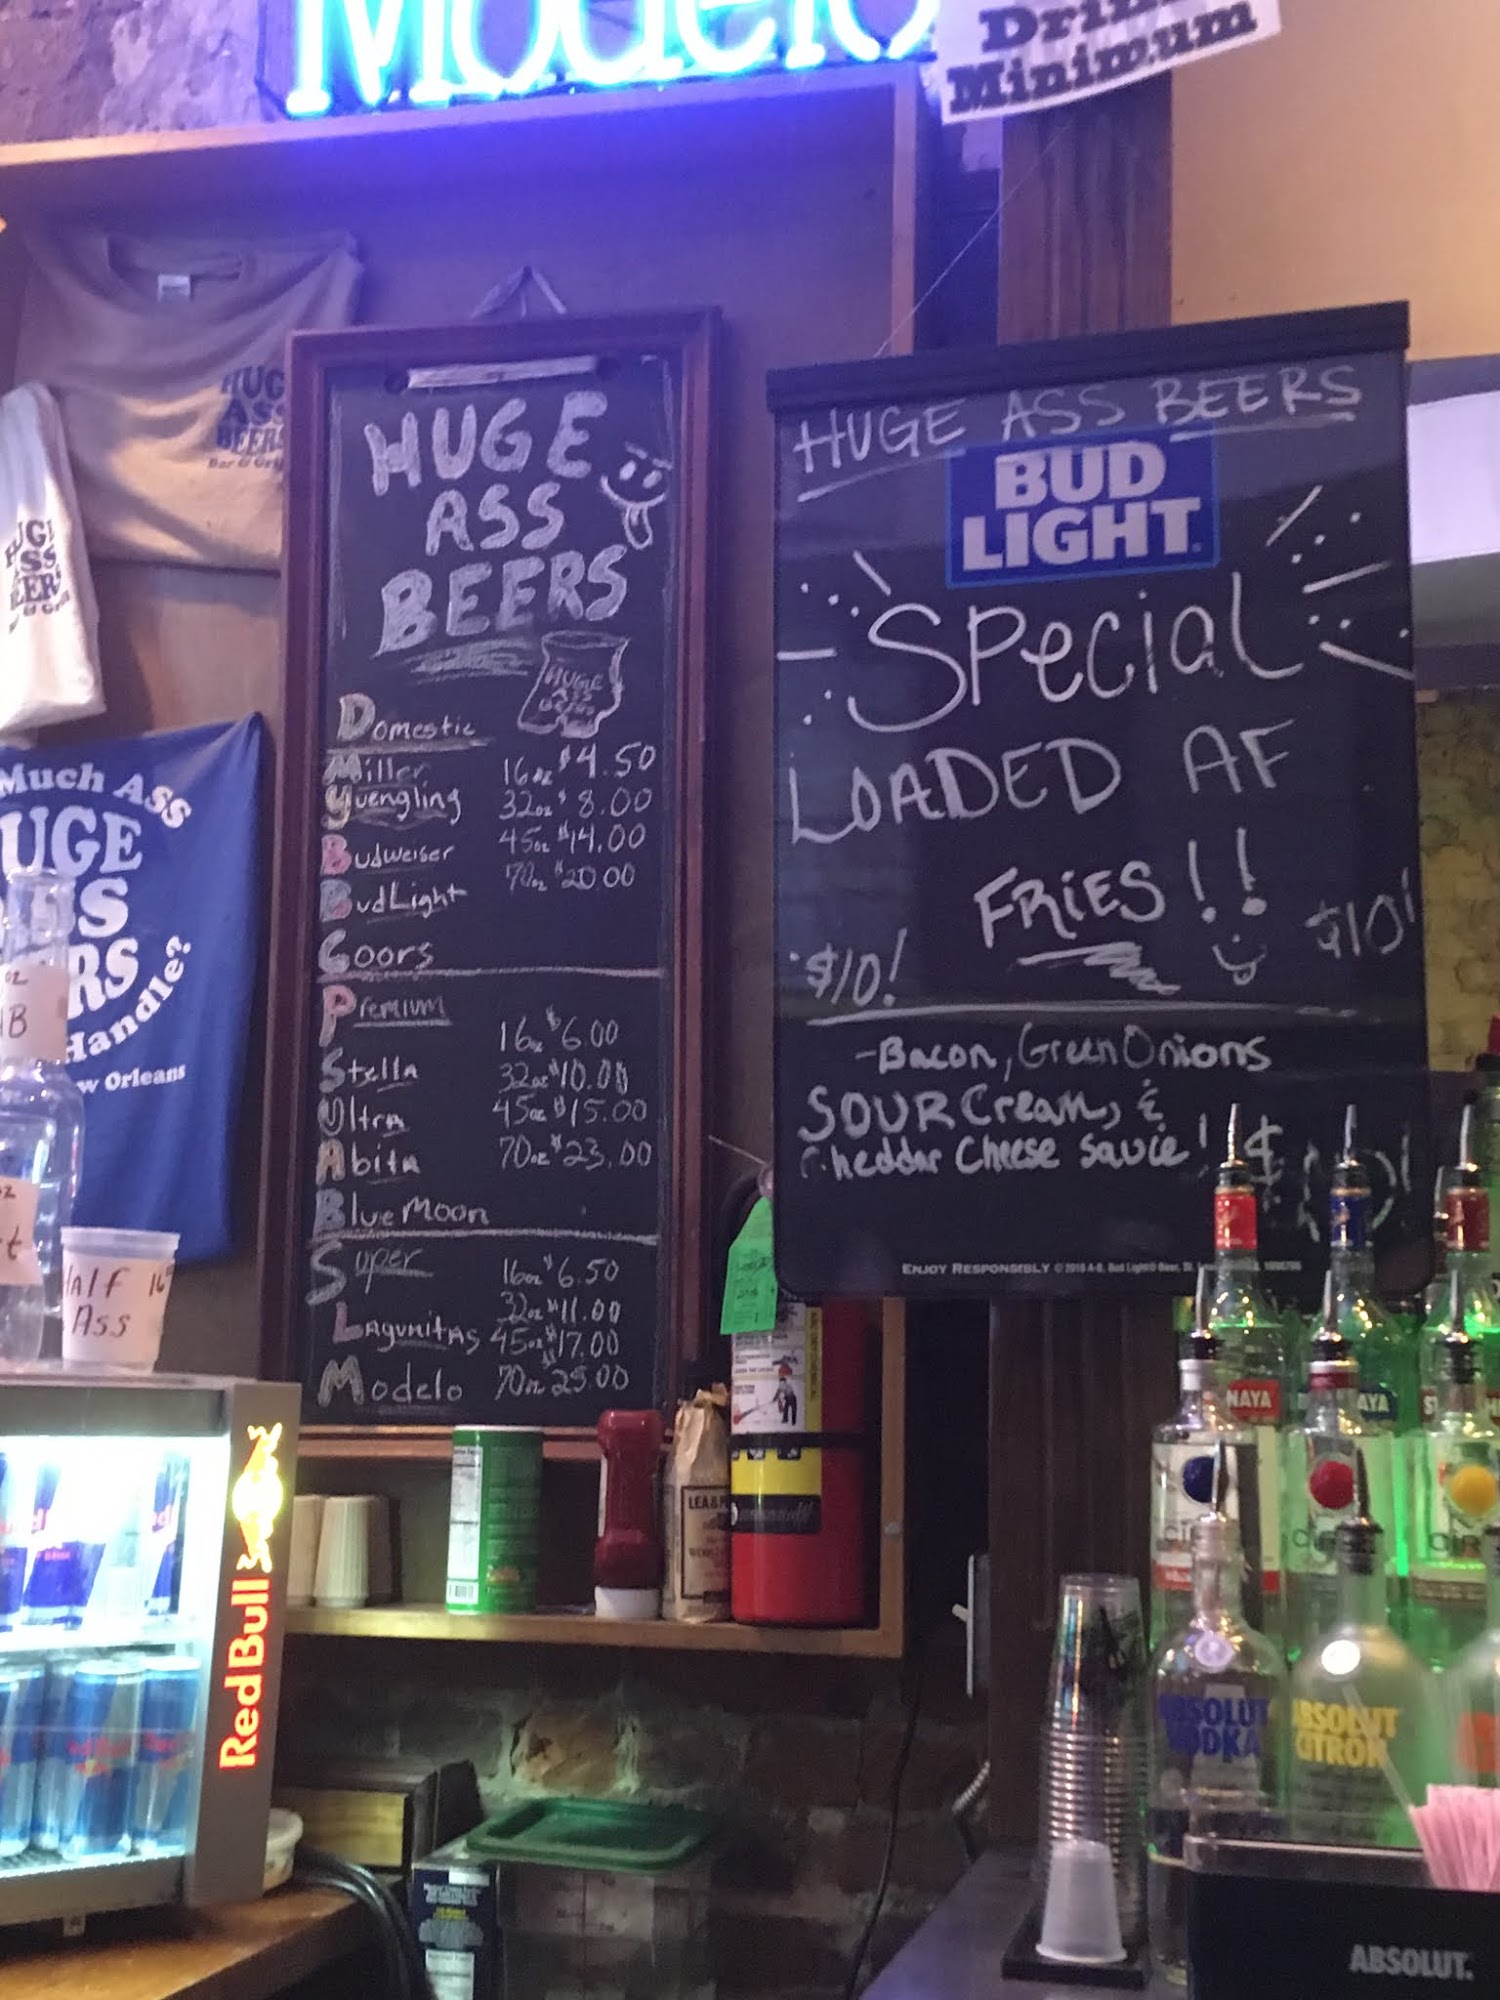 Modelo
Minimum
HUGE
ASS
BEERS
HUGE
ASS
BEERS
Domestic
Miller 16oz $4.50
Yuengling 32oz $8.00
Budweiser 45oz $14.00
Bud Light 70oz $20.00
Coors
Premium
16oz $6.00
Stella 32oz $10.00
Ultra 45oz $15.00
Abita 70oz $23.00
Blue Moon
Super 16oz $6.50
32oz $11.00
Lagunitas 45oz $17.00
Modelo 70oz $25.00
HUGE ASS BEERS
BUD
LIGHT
Special
LOADED AF
FRiES!!
$10! $10!
-Bacon, Green Onions
SOUR Cream, &
Cheddar Cheese Sauce!
ENJOY RESPONSIBLY
ASS
BEERS
Bar & Gri
Much Ass
Handle?
w Orleans
Half 16
Ass
RedBull
LEA & P
NAYA
ABSOLUT
VODKA
ABSOLUT
CITRON
ABSOLUT.